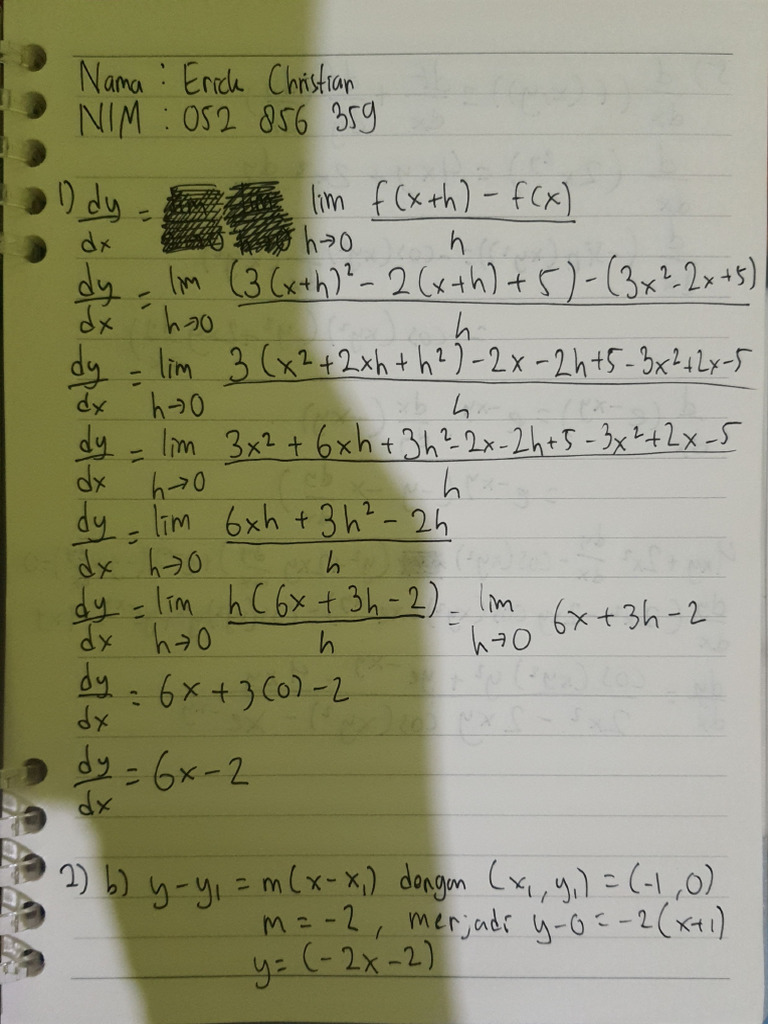 Nama : Erick Christian
NIM : 052 856 359
1) dy/dx = lim h→0 f(x+h) - f(x) / h
dy/dx = lim h→0 (3(x+h)² - 2(x+h) + 5) - (3x² - 2x + 5) / h
dy/dx = lim h→0 3(x² + 2xh + h²) - 2x - 2h + 5 - 3x² + 2x - 5 / h
dy/dx = lim h→0 3x² + 6xh + 3h² - 2x - 2h + 5 - 3x² + 2x - 5 / h
dy/dx = lim h→0 6xh + 3h² - 2h / h
dy/dx = lim h→0 h(6x + 3h - 2) / h = lim h→0 6x + 3h - 2
dy/dx = 6x + 3(0) - 2
dy/dx = 6x - 2
2) b) y - y₁ = m(x - x₁) dengan (x₁, y₁) = (-1, 0)
m = -2, menjadi y - 0 = -2(x+1)
y = (-2x - 2)